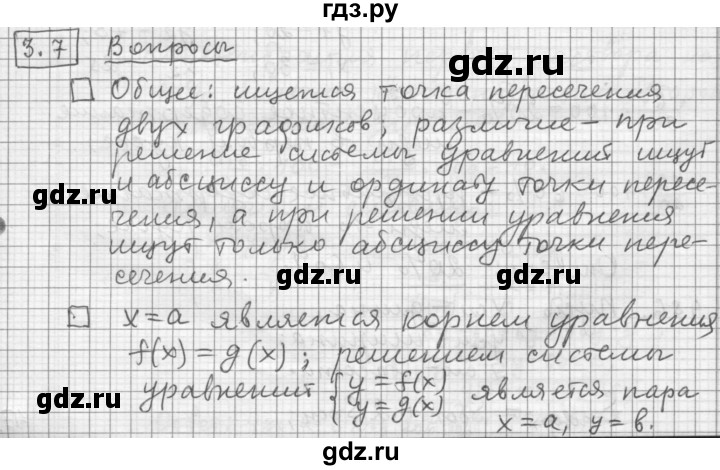 гдз.ру
3.7 Вопросы
gdz.ru
□ Общее: ищется точка пересечения
двух графиков; различие – при
решение системы уравнений ищут
gdz.ru
gdz.ru
и абсциссу и ординату точки пересе-
чения, а при решении уравнения
ищут только абсциссу точки пере-
сечения.
gdz.ru
gdz.ru
□ x=a является корнем уравнения
f(x)=g(x); решением системы
gdz.ru
gdz.ru
уравнений { y=f(x) является пара
y=g(x)
x=a, y=в.
gdz.ru